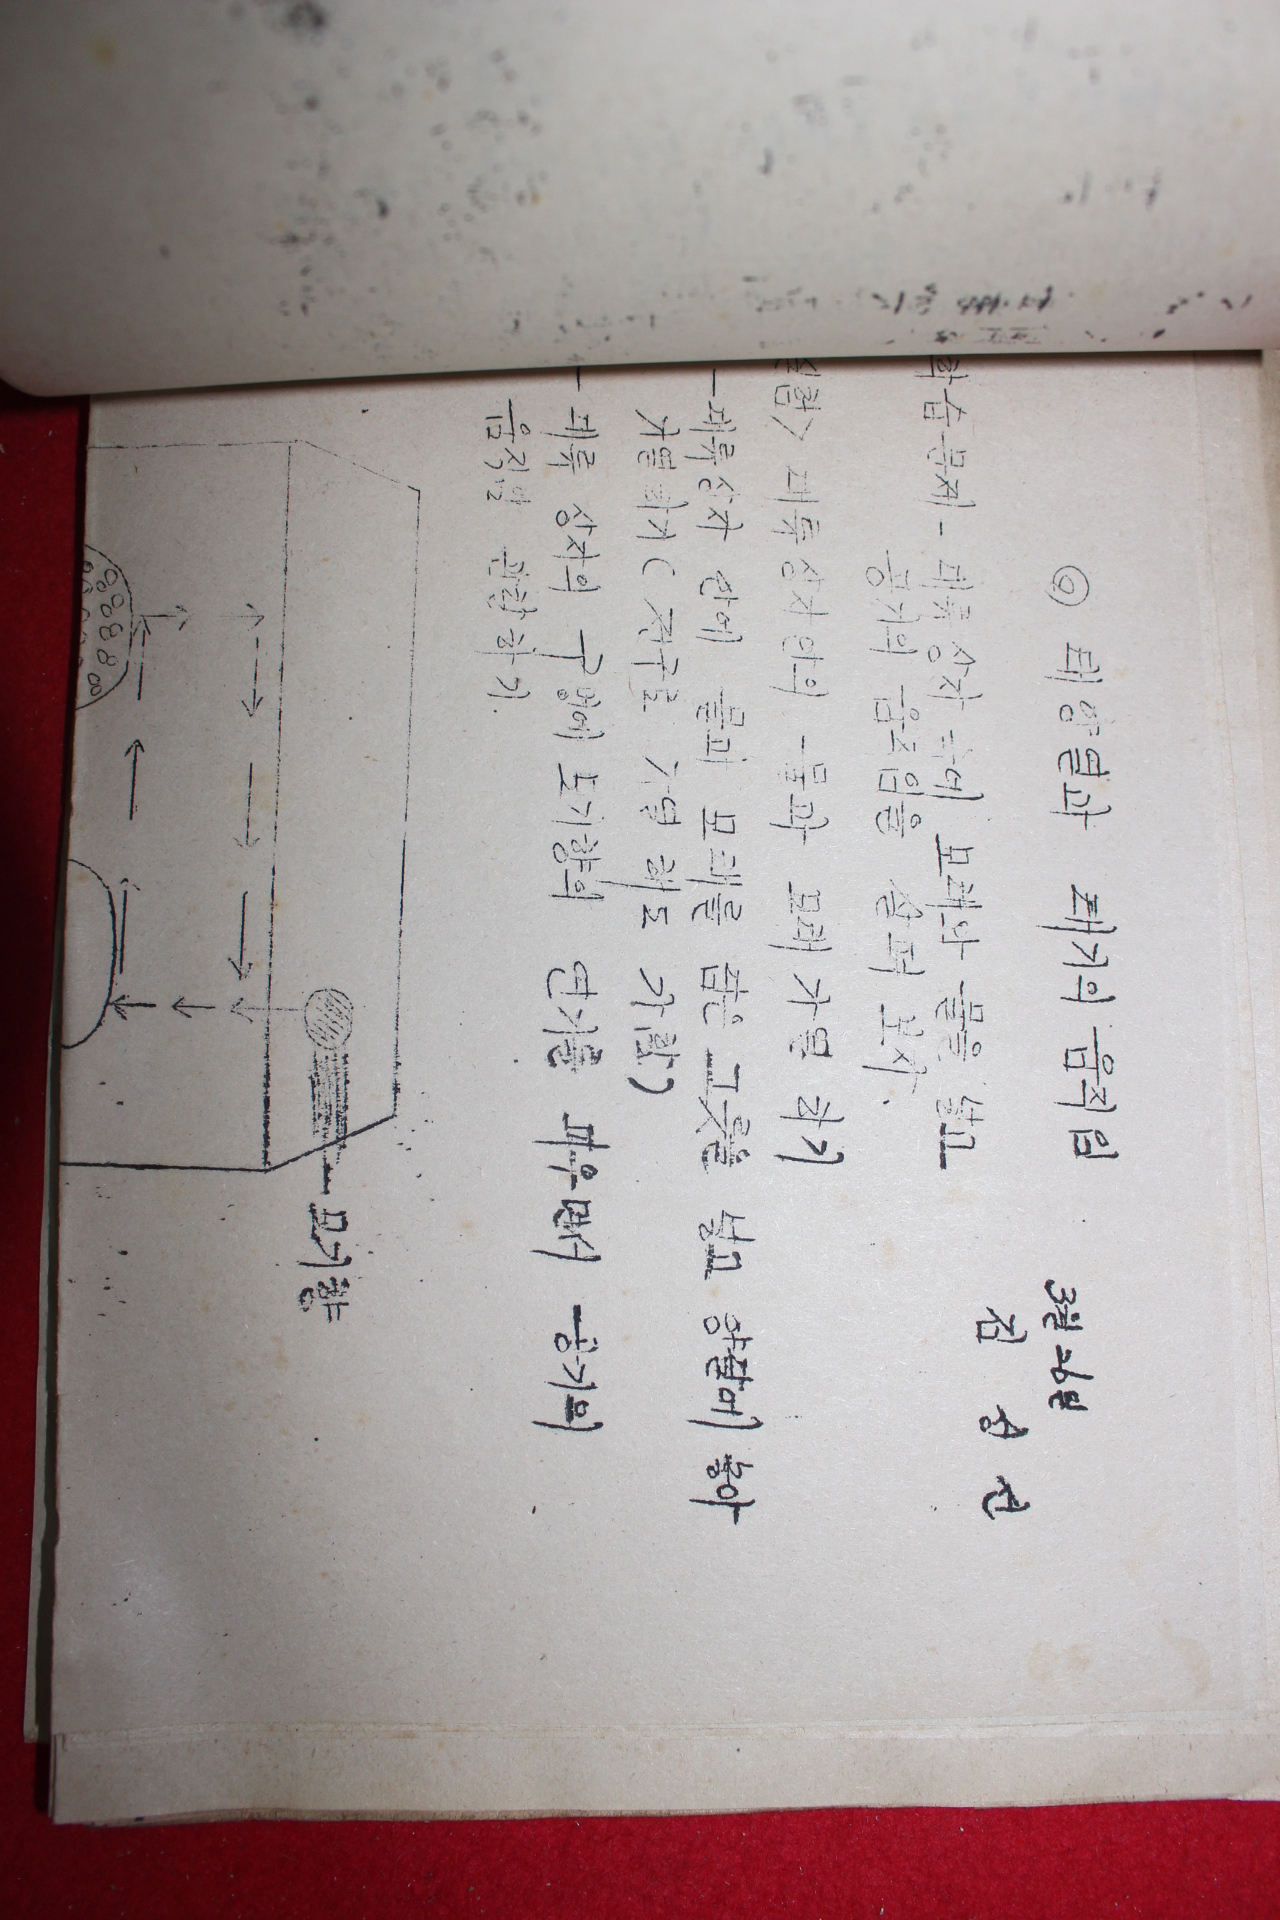 ② 태양열과 대기의 움직임
3월 26일
김 승 전
학습문제 - 대류상자 속에 모래와 물을 넣고
공기의 움직임을 살펴 보자.
실험> 대류상자 안의 물과 모래 가열 하기
- 대류상자 안에 물과 모래를 담은 그릇을 넣고 양달에 놓아
가열하기 (전구로 가열 해도 가함)
- 대류 상자의 구멍에 모기향의 연기를 피우면서 공기의
움직임 관찰하기.
모기향